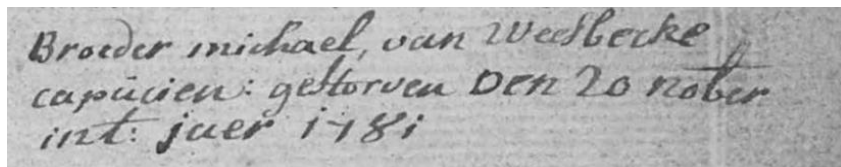 Broeder michael, van Weesbecke
capucien: gestorven Den 20 nober
int: jaer 1781